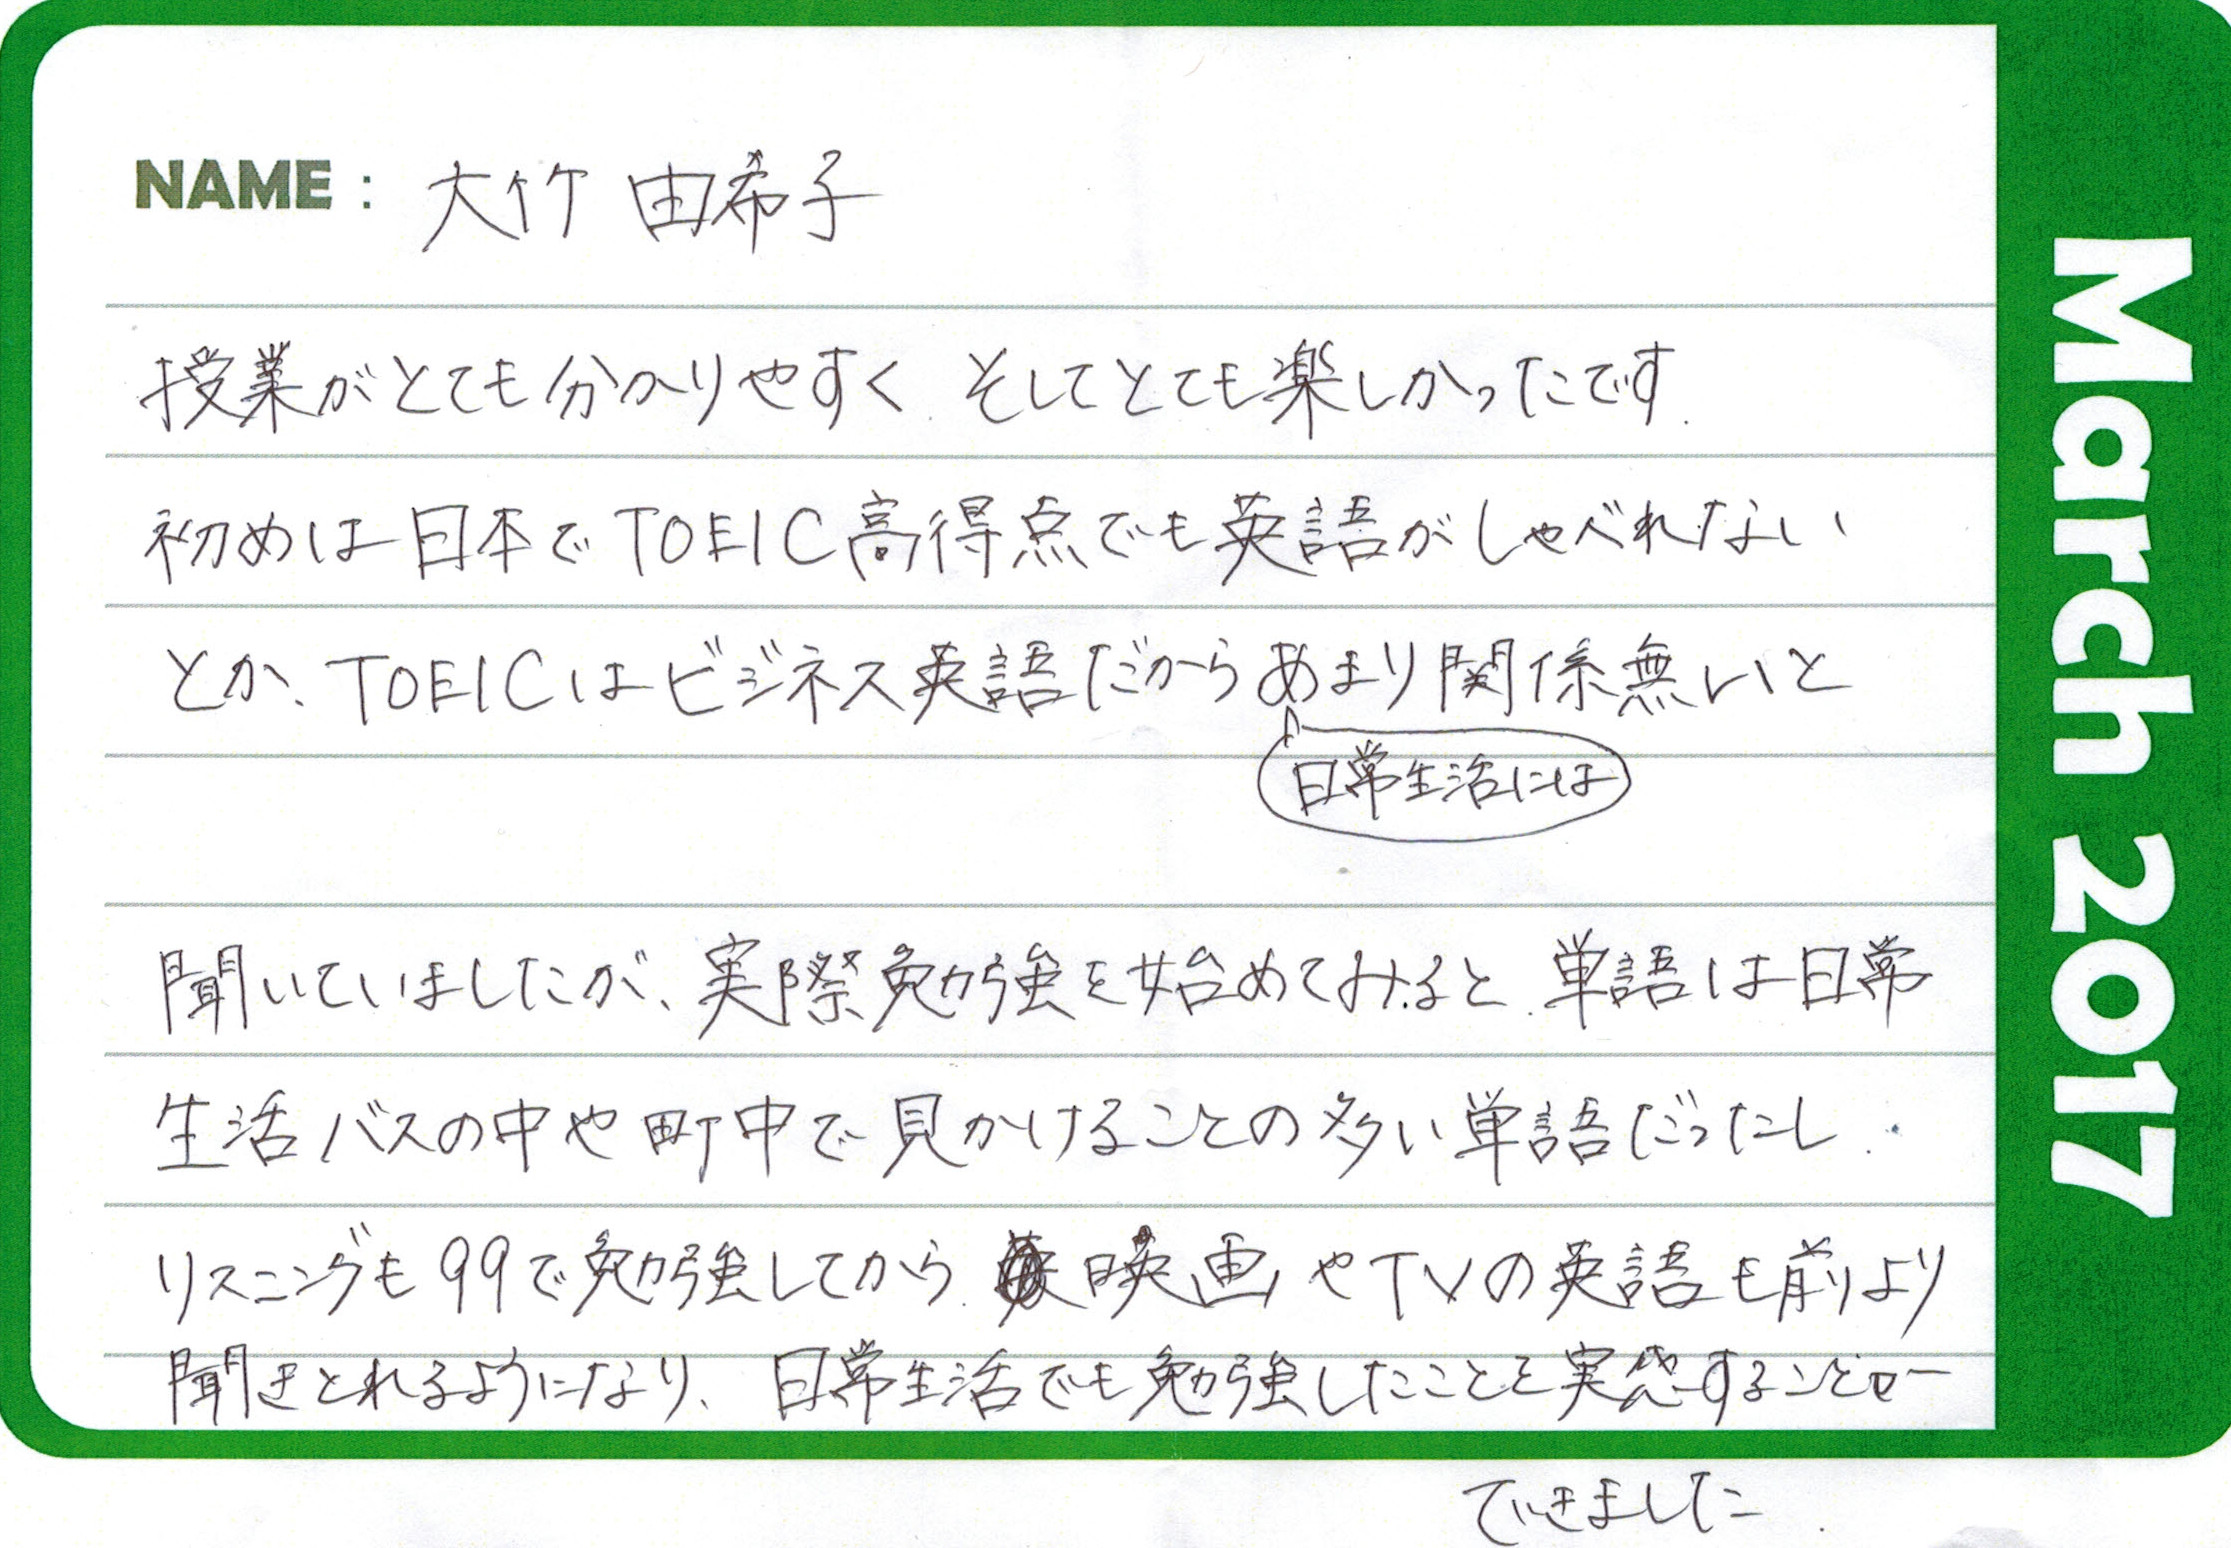 NAME : 大竹 由希子
授業がとても分かりやすく、そしてとても楽しかったです.
初めは日本でTOEIC高得点でも英語がしゃべれない
とか、TOEICはビジネス英語だからあまり関係無いと
日常生活には
聞いていましたが、実際勉強を始めてみると、単語は日常
生活バスの中や町中で見かけることの多い単語だったし、
リスニングも99で勉強してから、映画やTVの英語も前より
聞きとれるようになり、日常生活でも勉強したことを実感することが
できました.
March 2017